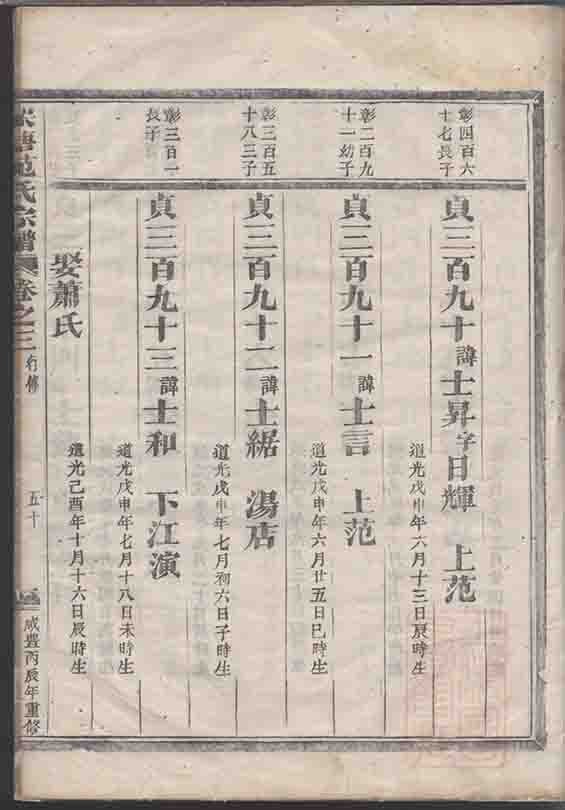 彰四百六
十七長子
貞三百九十諱士昇字日輝 上范
道光戊申年六月十三日辰時生
彰二百九
十一幼子
貞三百九十一諱士言 上范
道光戊申年六月廿五日巳時生
彰三百五
十八三子
貞三百九十二諱士 湯店
道光戊申年七月初六日子時生
彰三百一
長子
貞三百九十三諱士和 下江演
道光戊申年七月十八日未時生
娶蕭氏
道光己酉年十月十六日辰時生
范氏宗譜 卷之三 行傳 五十 咸豐丙辰年重修